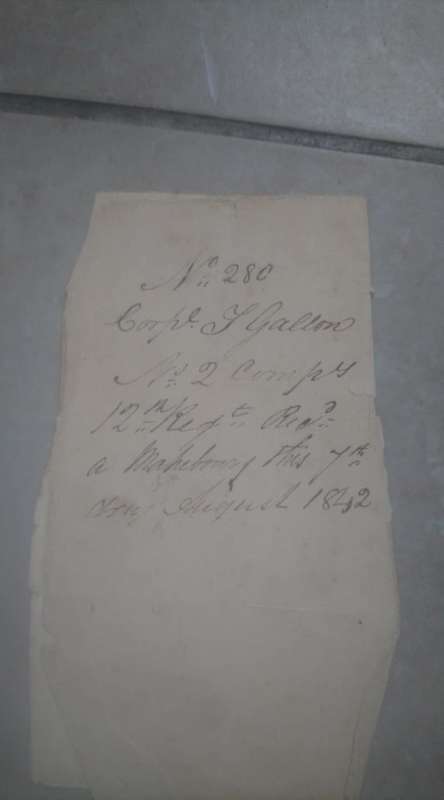 No 280
Corpl. T Gallon
No 2 Compy
12th Regt. Recd
a Mahebourg this 7th
day August 1842